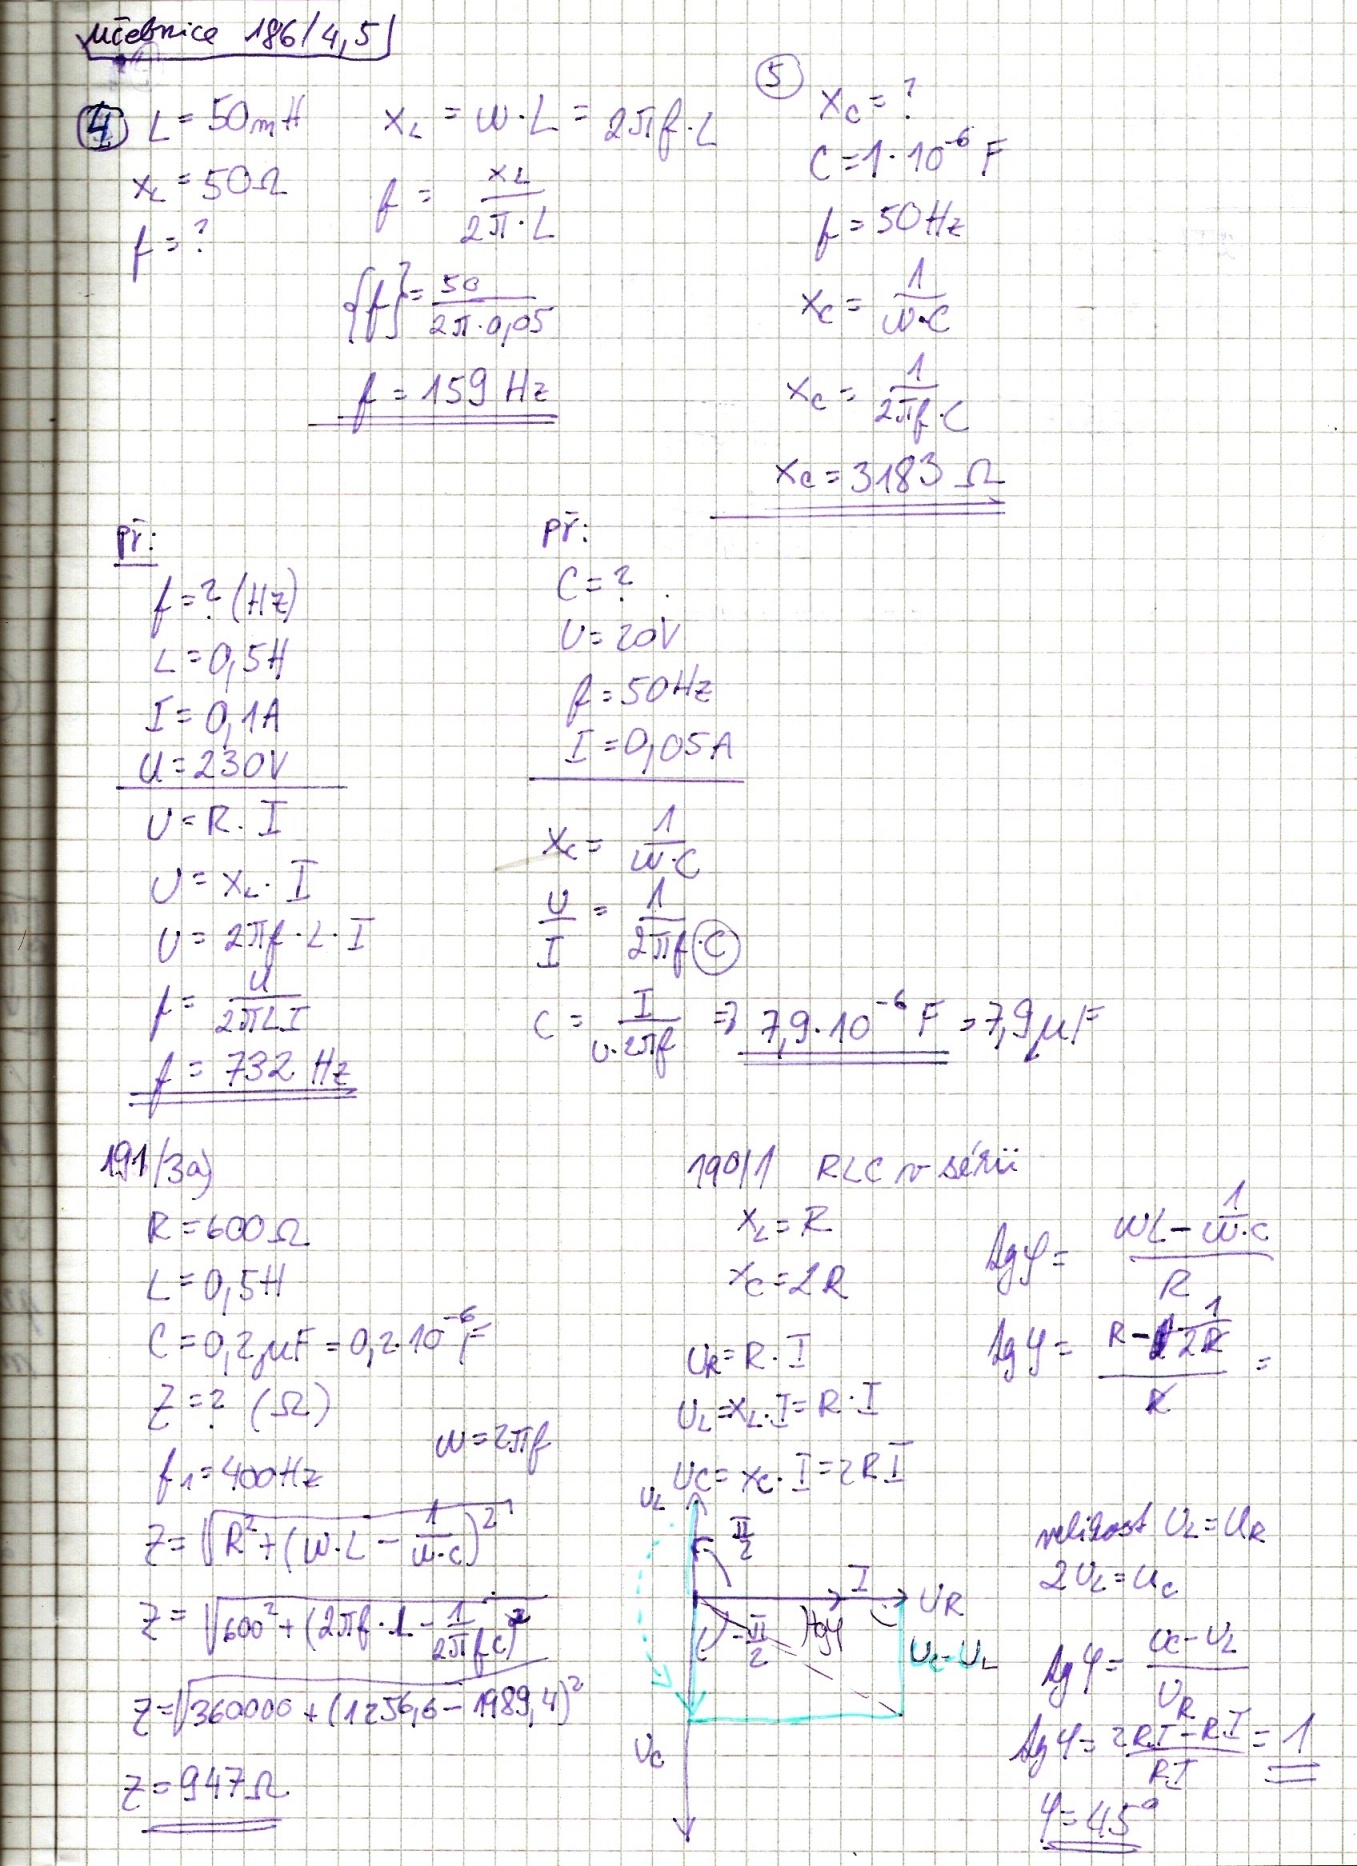 učebnice 186/4,5
④ L = 50mH
X_L = 50Ω
f = ?
X_L = ω·L = 2πf·L
f = X_L / 2π·L
{f} = 50 / 2π·0,05
f = 159 Hz
⑤ X_C = ?
C = 1·10⁻⁶ F
f = 50Hz
X_C = 1 / ω·C
X_C = 1 / 2πf·C
X_C = 3183 Ω
Př:
f = ? (Hz)
L = 0,5H
I = 0,1A
U = 230V
U = R·I
U = X_L·I
U = 2πf·L·I
f = U / 2πLI
f = 732 Hz
Př:
C = ?
U = 20V
f = 50Hz
I = 0,05A
X_C = 1 / ω·C
U / I = 1 / 2πf·C
C = I / U·2πf ⇒ 7,9·10⁻⁶ F = 7,9μF
191/3a)
R = 600Ω
L = 0,5H
C = 0,2μF = 0,2·10⁻⁶F
Z = ? (Ω)
ω = 2πf
f₁ = 400Hz
Z = √(R² + (ω·L − 1/ω·C)²)
Z = √(600² + (2πf·L − 1/2πfC)²)
Z = √(360000 + (1256,6 − 1989,4)²)
Z = 947Ω
190/1 RLC v sérii
X_L = R
X_C = 2R
U_R = R·I
U_L = X_L·I = R·I
U_C = X_C·I = 2RI
tg φ = (ωL − 1/ω·C) / R
tg φ = (R − 1/2R) / R =
U_L
π/2
I
U_R
−π/2
tgφ
U_C − U_L
U_C
velikost U_L = U_R
2U_L = U_C
tg φ = (U_C − U_L) / U_R
tg φ = (2RI − RI) / RI = 1
φ = 45°